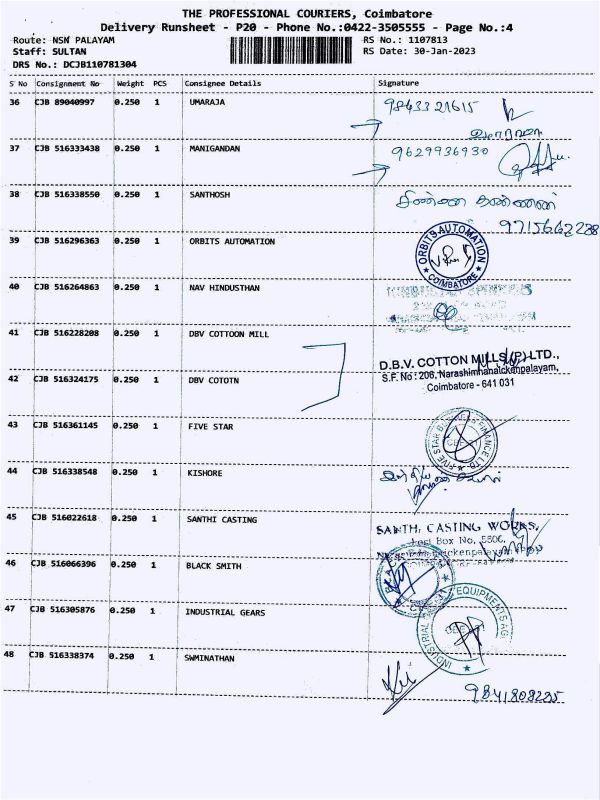 THE PROFESSIONAL COURIERS, Coimbatore
Delivery Runsheet - P20 - Phone No.:0422-3505555 - Page No.:4
Route: NSN PALAYAM RS No.: 1107813
Staff: SULTAN RS Date: 30-Jan-2023
DRS No.: DCJB110781304
S No Consignment No Weight PCS Consignee Details Signature
36 CJB 89040997 0.250 1 UMARAJA 9843321615
37 CJB 516333438 0.250 1 MANIGANDAN 9629936930
38 CJB 516338550 0.250 1 SANTHOSH சின்ன கண்ணன்
9715662238
39 CJB 516296363 0.250 1 ORBITS AUTOMATION ORBITS AUTOMATION
COIMBATORE
40 CJB 516264863 0.250 1 NAV HINDUSTHAN
41 CJB 516228208 0.250 1 DBV COTTOON MILL
D.B.V. COTTON MILLS (P) LTD.,
S.F. No : 206, Narashimhanaickenpalayam,
Coimbatore - 641 031
42 CJB 516324175 0.250 1 DBV COTOTN
43 CJB 516361145 0.250 1 FIVE STAR FIVE STAR BUSINESS FINANCE LTD
44 CJB 516338548 0.250 1 KISHORE
45 CJB 516022618 0.250 1 SANTHI CASTING SANTHI CASTING WORKS,
Post Box No. 5806,
46 CJB 516066396 0.250 1 BLACK SMITH
47 CJB 516305876 0.250 1 INDUSTRIAL GEARS INDUSTRIAL EQUIPMENTS
48 CJB 516338374 0.250 1 SWMINATHAN
9841808235